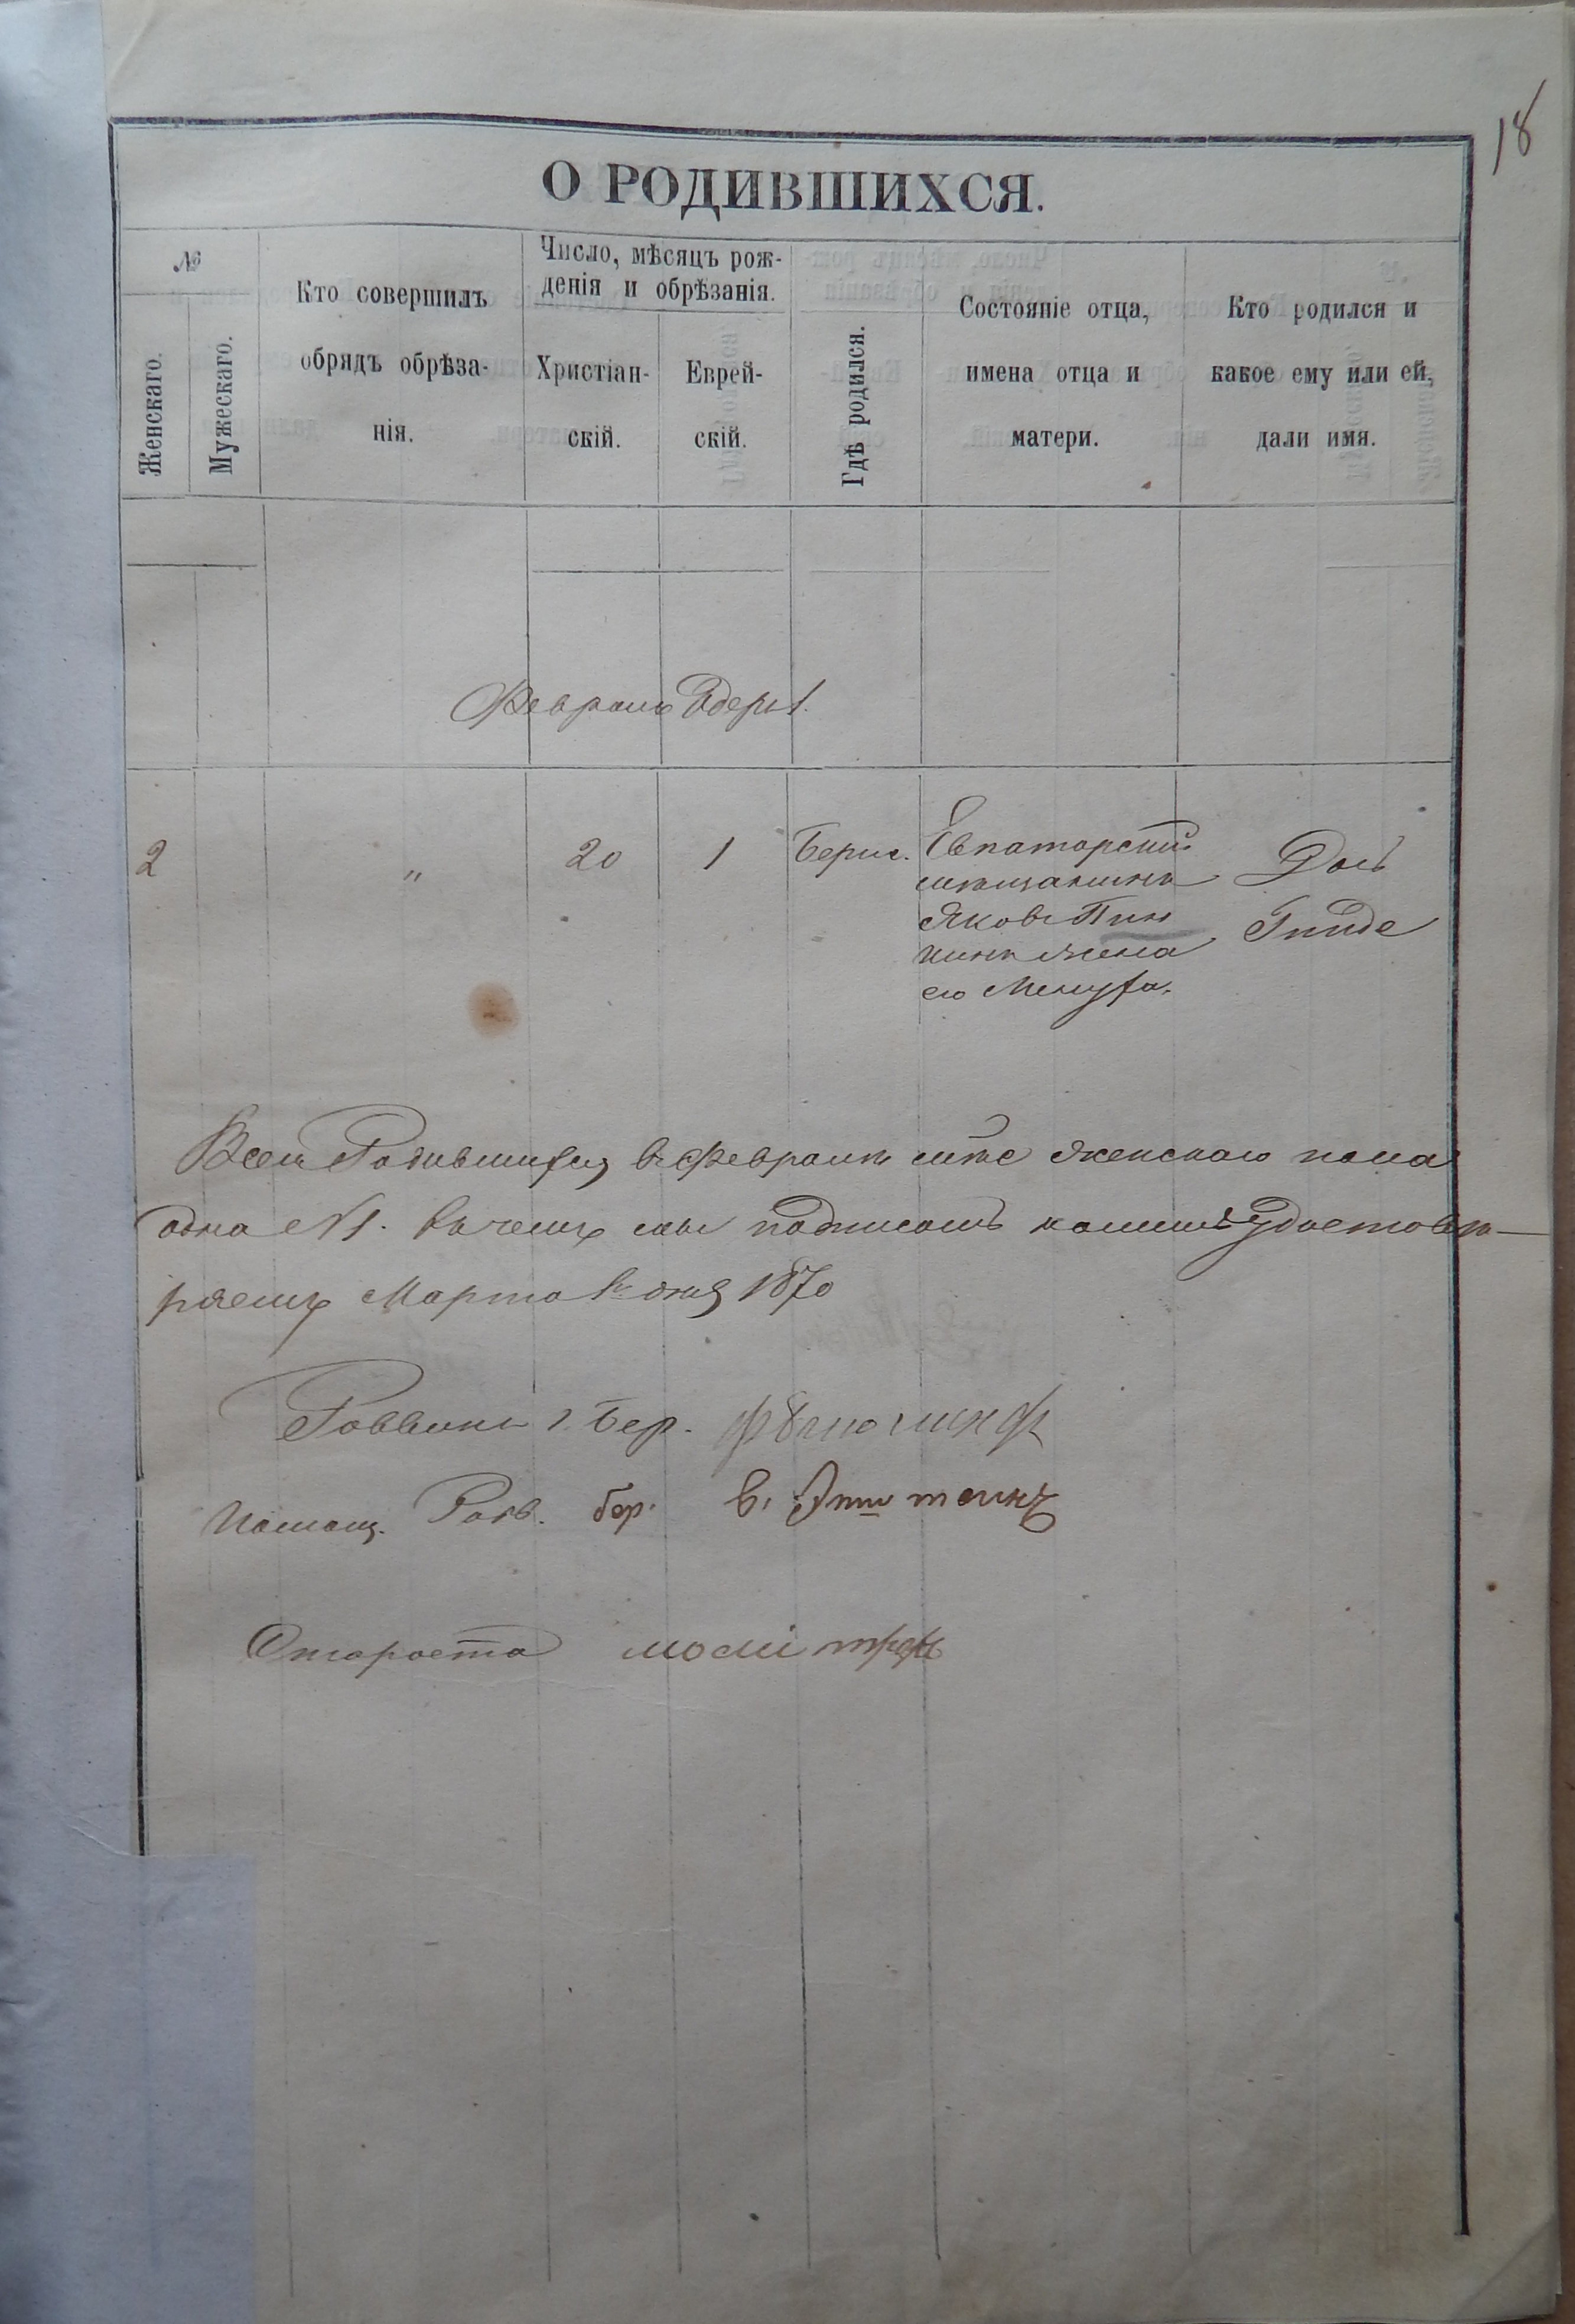 18
О РОДИВШИХСЯ.
№
Женскаго.
Мужескаго.
Кто совершилъ
обрядъ обрѣза-
нія.
Число, мѣсяцъ рож-
денія и обрѣзанія.
Христіан-
скій.
Еврей-
скій.
Гдѣ родился.
Состояніе отца,
имена отца и
матери.
Кто родился и
какое ему или ей,
дали имя.
Февраль Адеръ 1.
2 " 20 1 Берис.
Евпаторский
мѣщанинъ
Яковъ Пин
жена
его Менуха.
Дочь
Гинде
Всех Родившихся въ Феврале м-це женскаго пола
одна №1. въ чемъ мы подписомъ нашимъ удостовѣ-
ряемъ Марта 1го дня 1870
Раввинъ г. Бер.
Помощ. Равв. бер. в.
Староста